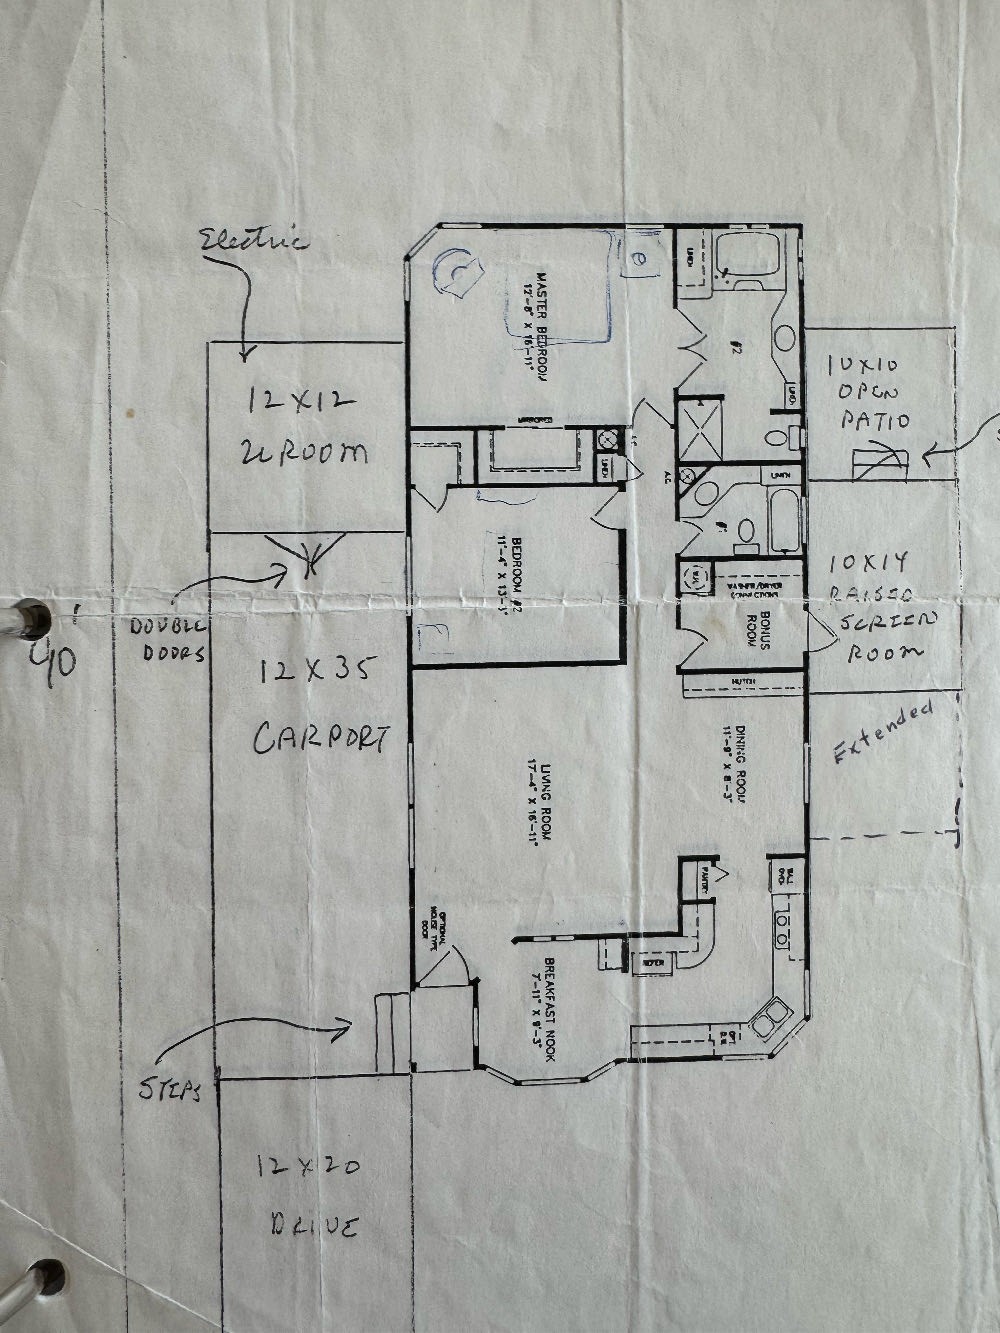 Electric
12X12
UROOM
DOUBLE
DOORS
40'
12 X 35
CARPORT
STEPS
12 X 20
DRIVE
MASTER BEDROOM
12'-8" X 16'-11"
MIRRORED
LINEN
#2
LINEN
LINEN
A.C.
LINEN
#1
BEDROOM #2
11'-4" X 13'-1"
BONUS
ROOM
HUTCH
DINING ROOM
11'-9" X 8'-3"
LIVING ROOM
17'-4" X 16'-11"
PANTRY
WALL
OVEN
OPTIONAL
HOUSE TYPE
DOOR
REFER
BREAKFAST NOOK
7'-11" X 9'-3"
OPT.
D.W.
10X10
OPEN
PATIO
10X14
RAISED
SCREEN
ROOM
Extended